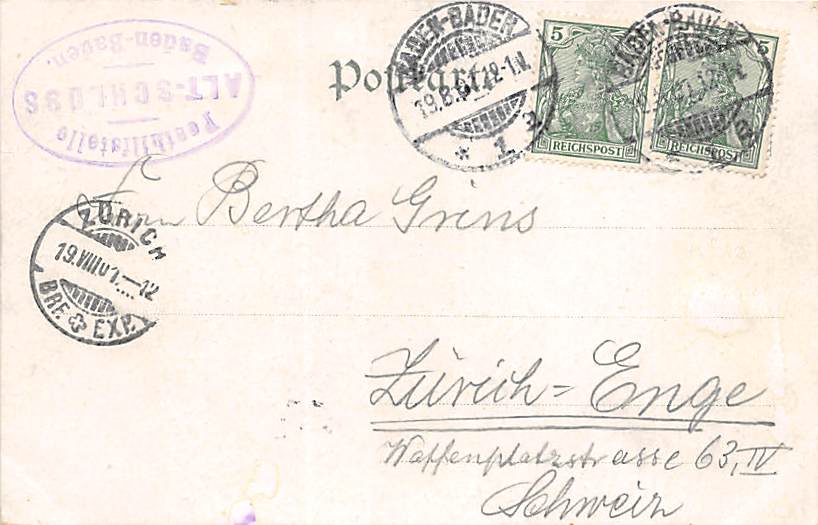 Posthilfstelle
ALT-SCHLOSS
Baden-Baden.
Postkarte
BADEN-BADEN
19.8.01.12-1N.
* 1 a
5
REICHSPOST
BADEN-BADEN
* 1 a
5
REICHSPOST
Frau Bertha Greins
ZÜRICH
19.VIII.01.-12
BRF. EXP.
Zürich=Enge
Waffenplatzstrasse 63, IV
Schweiz